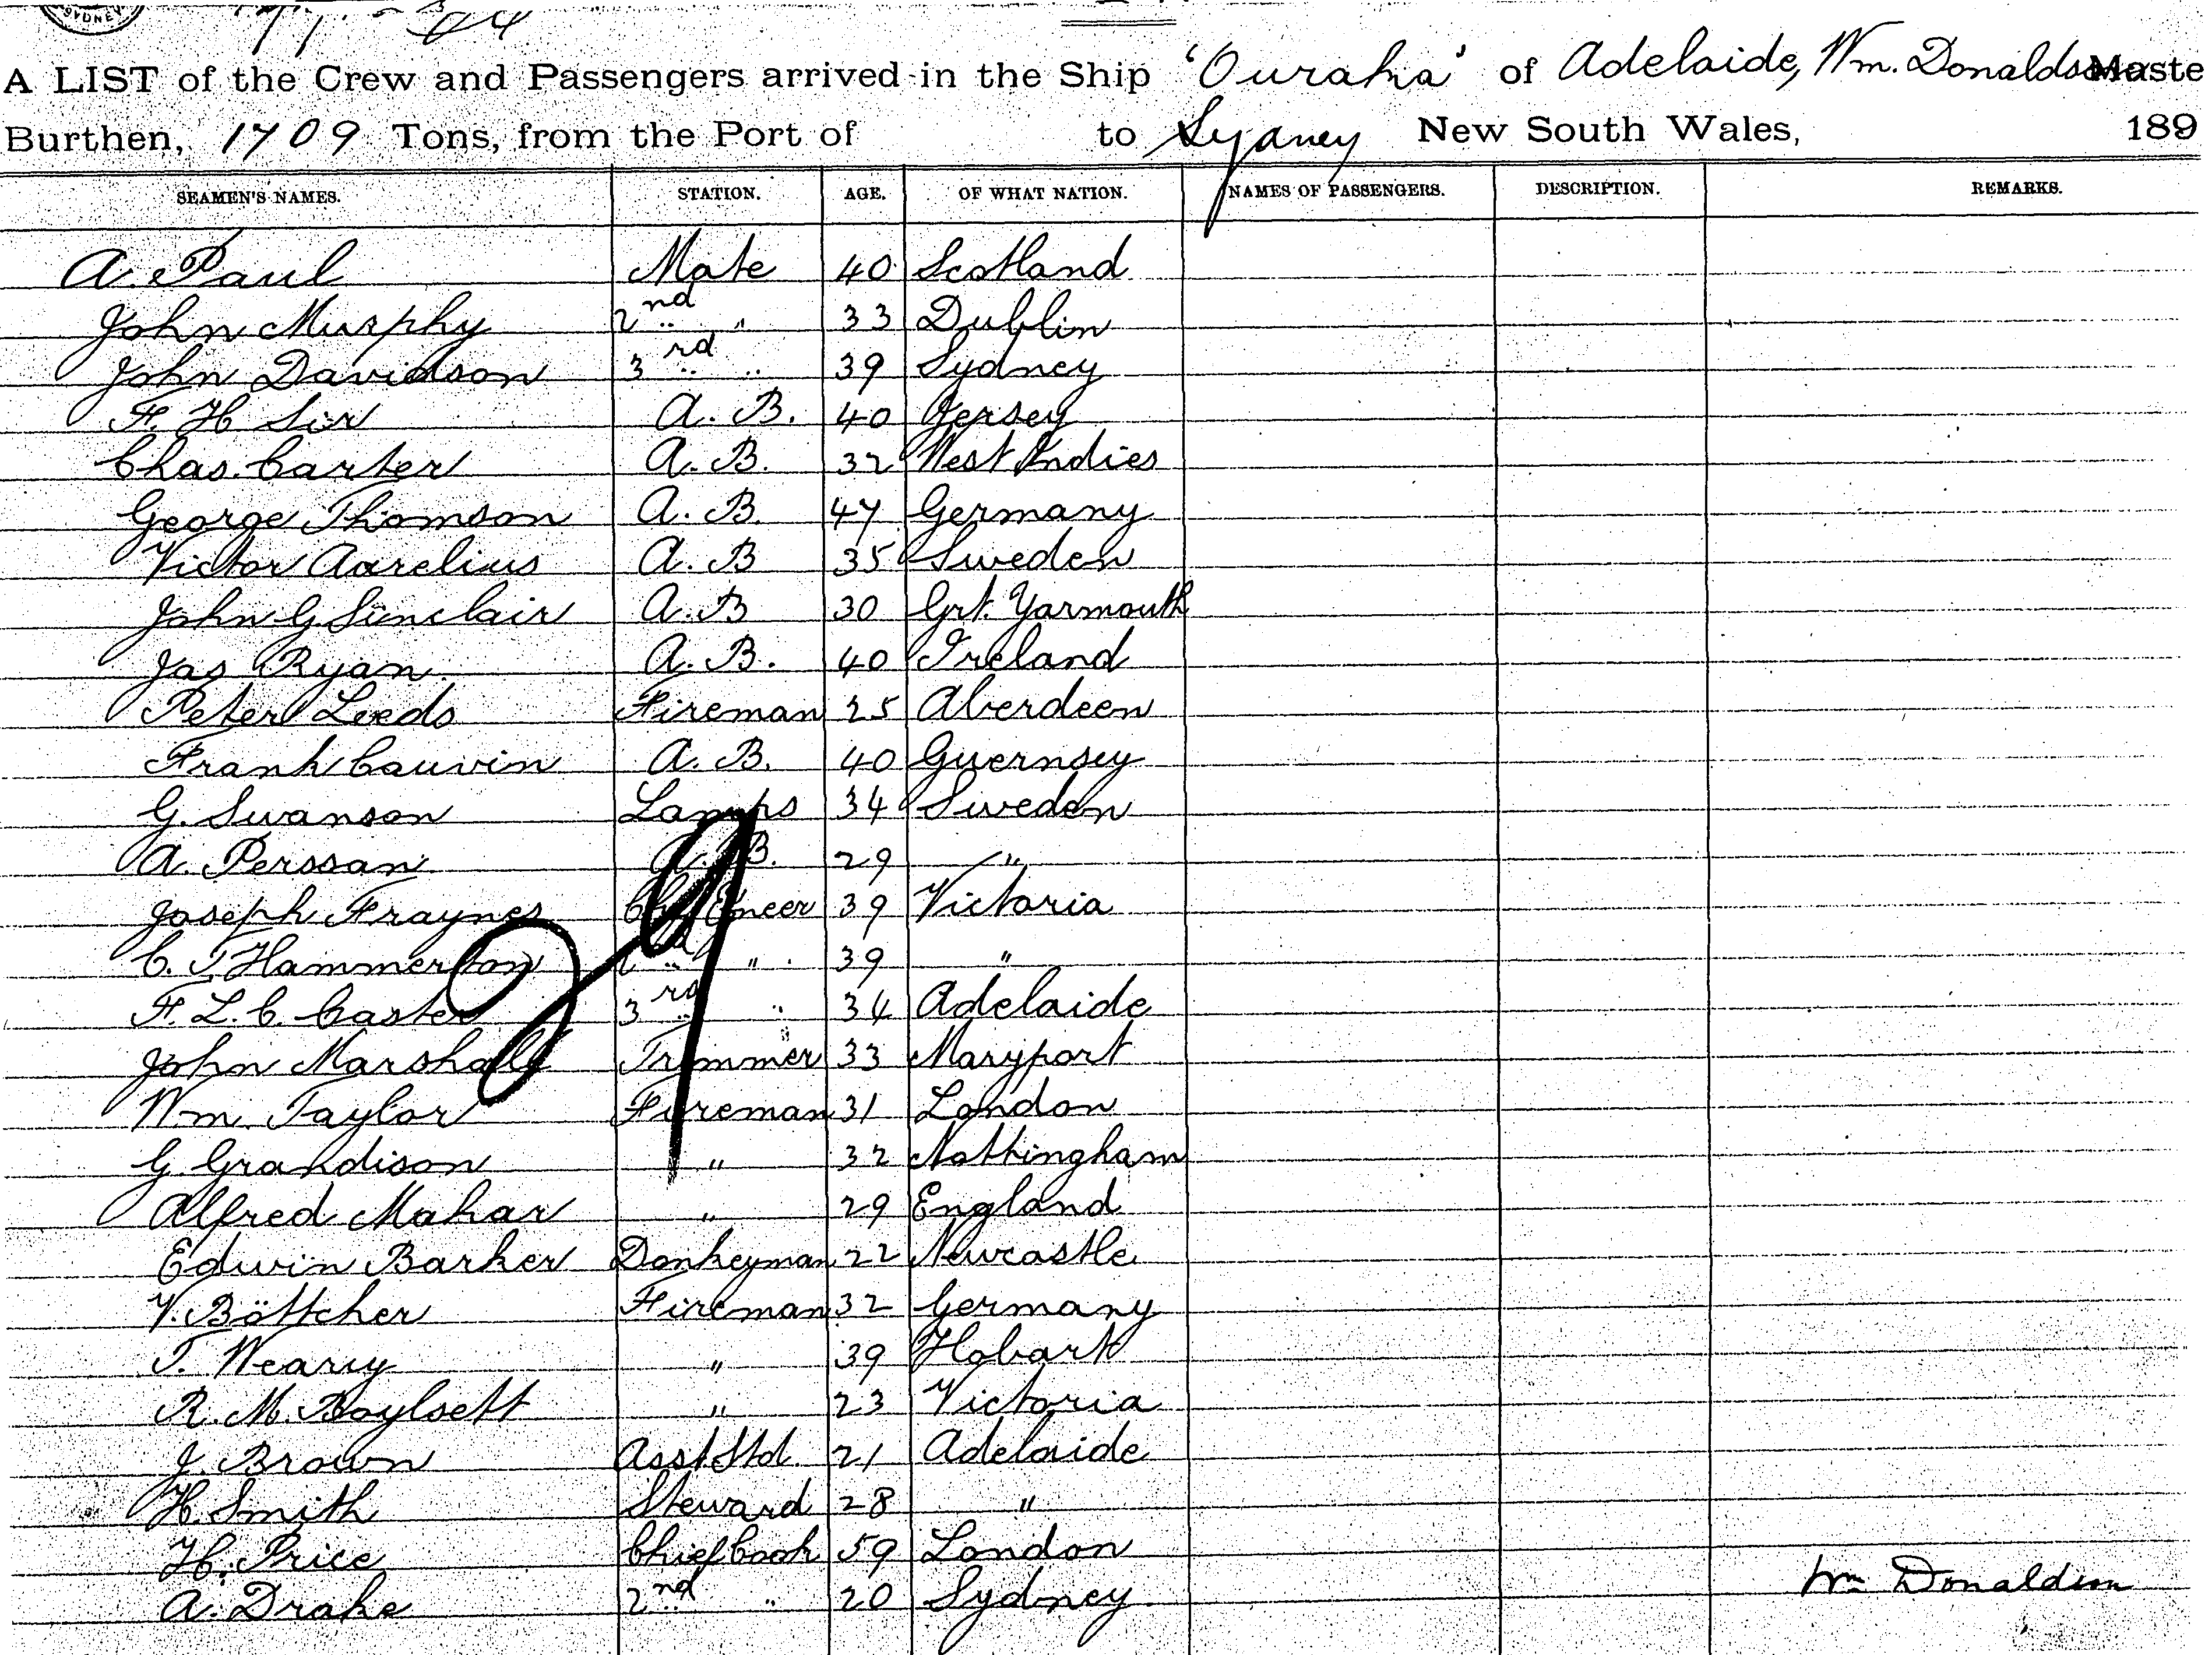 SYDNEY
A LIST of the Crew and Passengers arrived in the Ship 'Ouraka' of Adelaide, Wm. Donaldson Maste
Burthen, 1709 Tons, from the Port of to Sydney New South Wales, 189
SEAMEN'S NAMES. STATION. AGE. OF WHAT NATION. NAMES OF PASSENGERS. DESCRIPTION. REMARKS.
A. Paul Mate 40 Scotland
John Murphy 2nd " 33 Dublin
John Davidson 3rd " 39 Sydney
F. H Sir A. B. 40 Jersey
Chas. Carter A. B. 32 West Indies
George Thomson A. B. 47 Germany
Victor Aurelius A. B 35 Sweden
John G Sinclair A. B 30 Grt. Yarmouth
Jas Ryan A. B. 40 Ireland
Peter Leeds Fireman 25 Aberdeen
Frank Cauvin A. B. 40 Guernsey
G. Swanson Lamps 34 Sweden
A. Perssan A. B. 29 "
Joseph Fraynes Chf Eneer 39 Victoria
C. T. Hammerton 2nd " 39 "
F. L. C. Caster 3rd " 34 Adelaide
John Marshall Trimmer 33 Maryport
Wm. Taylor Fireman 31 London
G. Grandison " 32 Nottingham
Alfred Mahar " 29 England
Edwin Barker Donkeyman 22 Newcastle
V. Böttcher Fireman 32 Germany
T. Weary " 39 Hobart
R. M. Boylsett " 23 Victoria
J. Brown Asst Std 21 Adelaide
H. Smith Steward 28 "
H. Price Chief Cook 59 London
A. Drake 2nd " 20 Sydney
Wm Donaldson